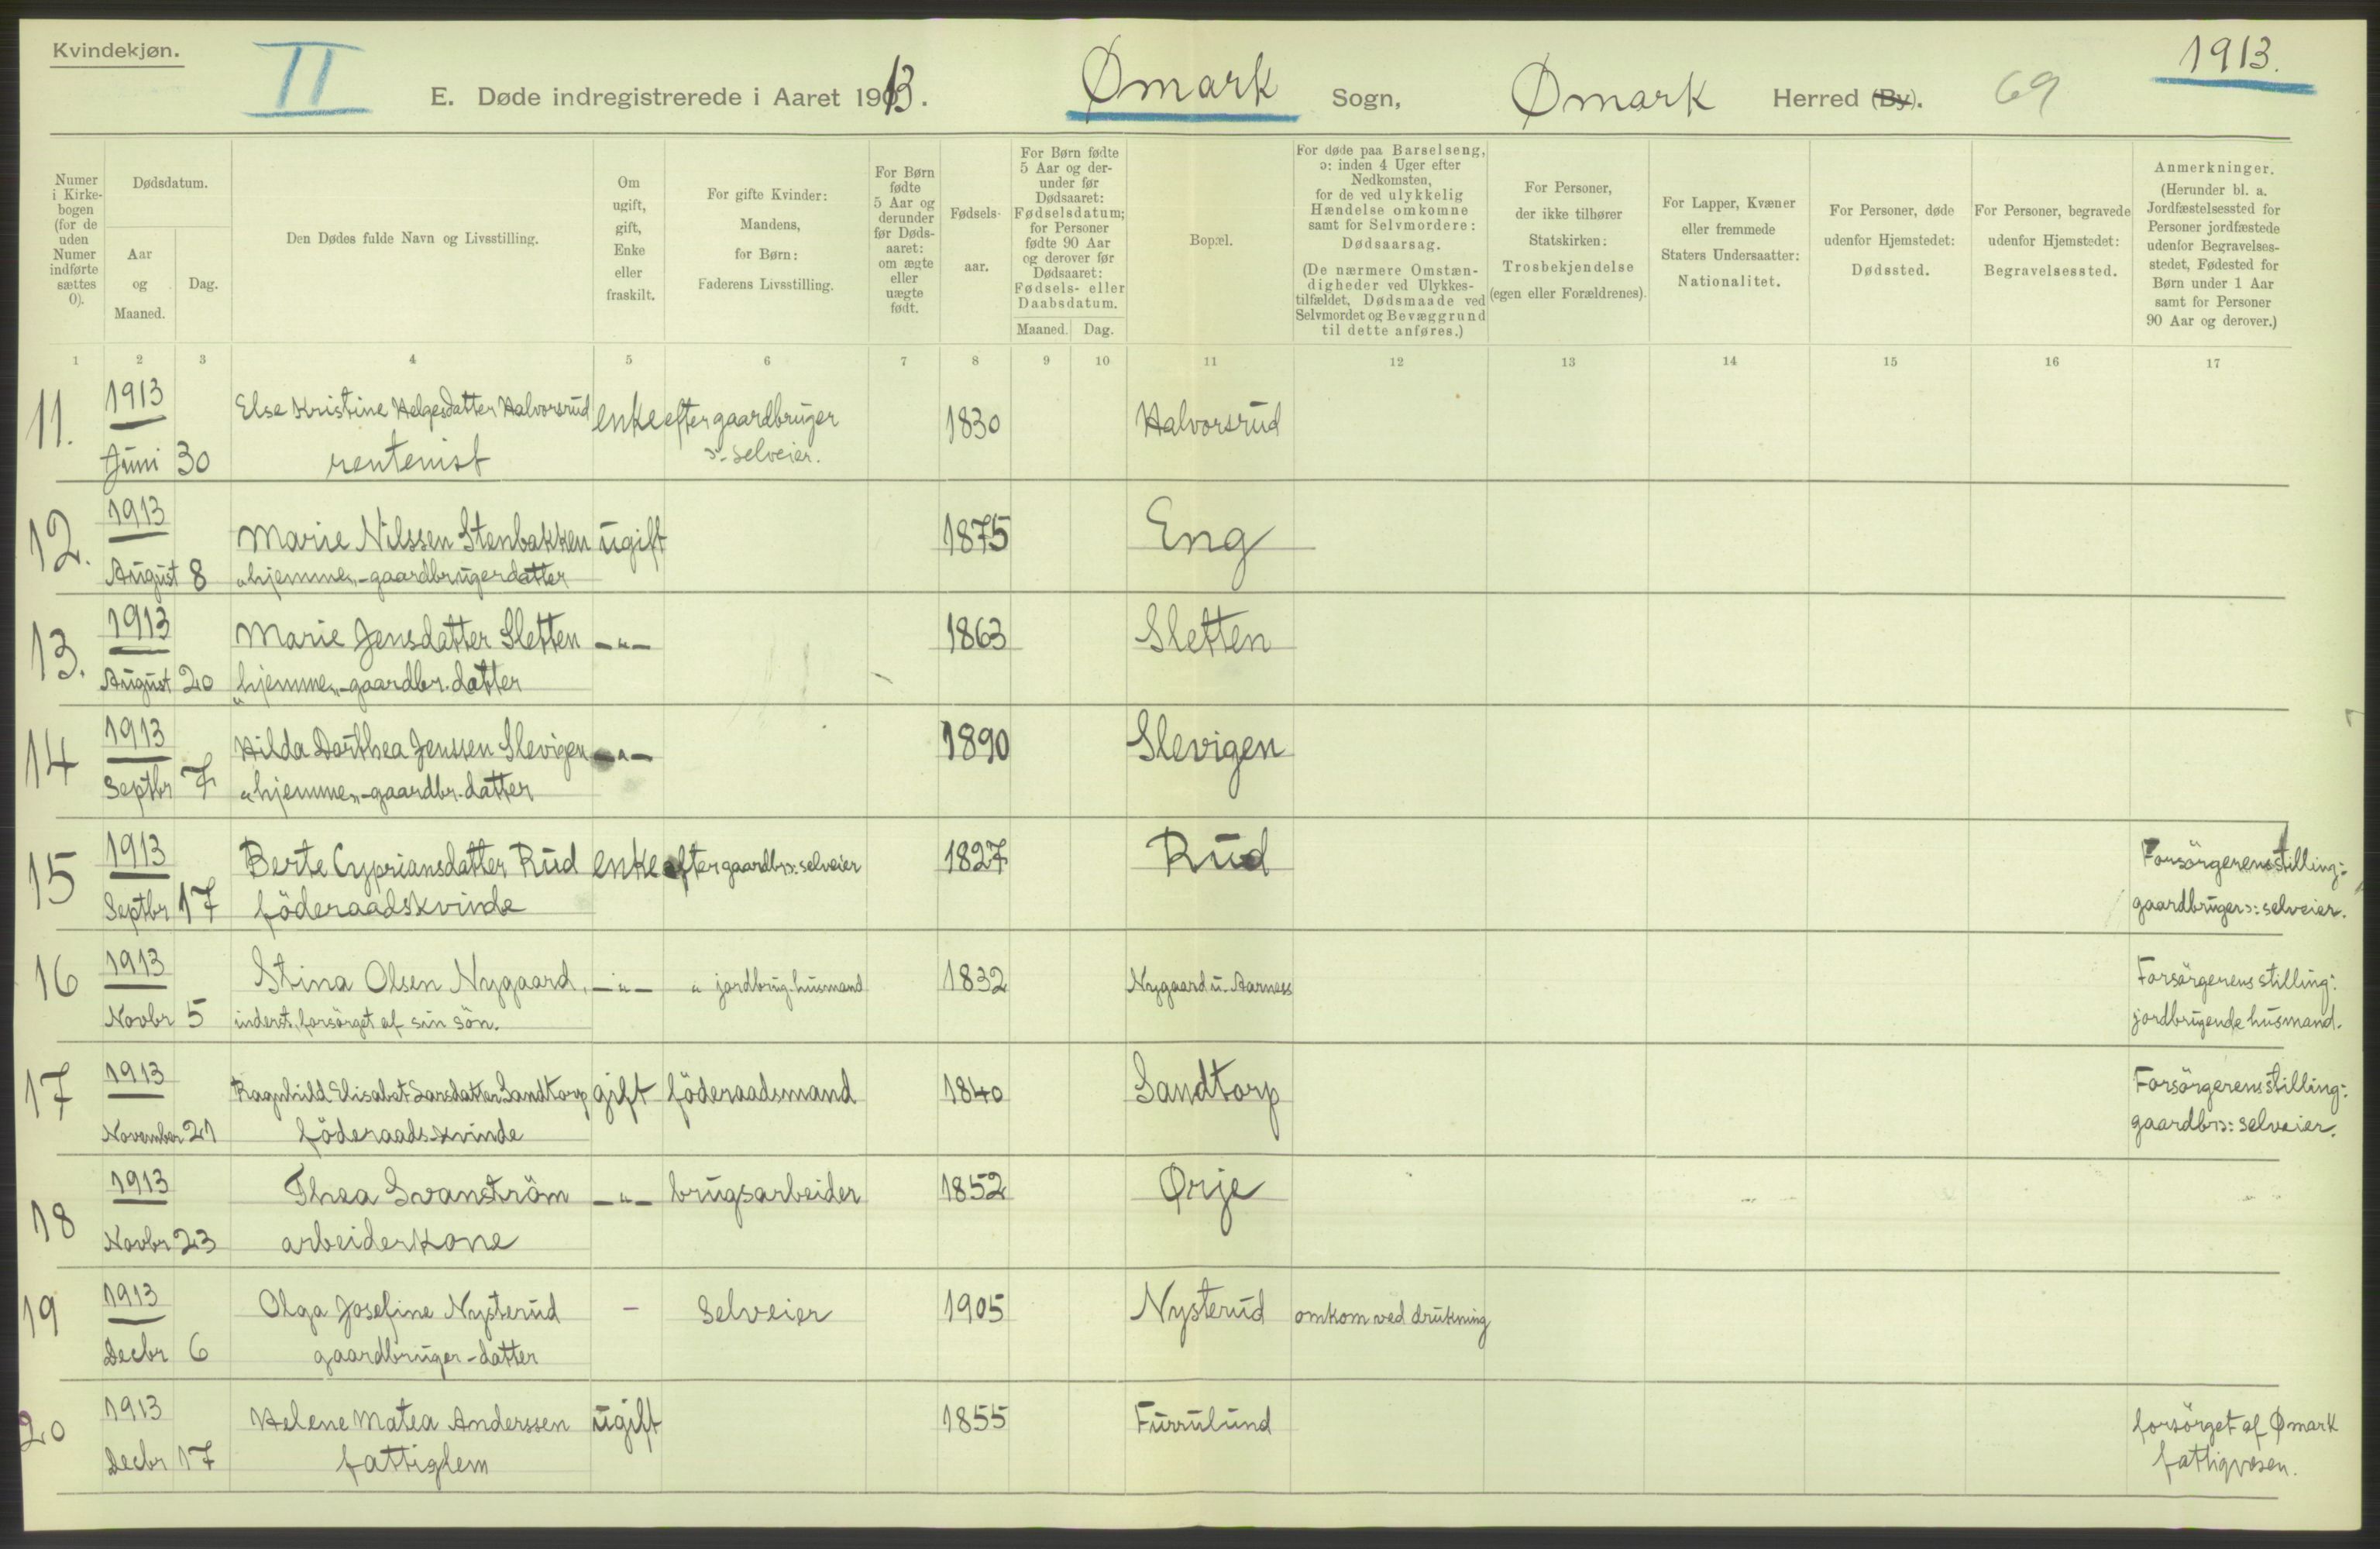 Kvindekjøn.
II
E. Døde indregistrerede i Aaret 1913.
Ømark Sogn,
Ømark Herred (By).
69
1913.
Numer i Kirkebogen (for de uden Numer indførte sættes 0).
Dødsdatum.
Aar og Maaned.
Dag.
Den Dødes fulde Navn og Livsstilling.
Om ugift, gift, Enke eller fraskilt.
For gifte Kvinder: Mandens, for Børn: Faderens Livsstilling.
For Børn fødte 5 Aar og derunder før Dødsaaret: om ægte eller uægte født.
Fødselsaar.
For Børn fødte 5 Aar og derunder før Dødsaaret: Fødselsdatum; for Personer fødte 90 Aar og derover før Dødsaaret: Fødsels- eller Daabsdatum.
Maaned. Dag.
Bopæl.
For døde paa Barselseng, ɔ: inden 4 Uger efter Nedkomsten, for de ved ulykkelig Hændelse omkomne samt for Selvmordere: Dødsaarsag.
(De nærmere Omstændigheder ved Ulykkestilfældet, Dødsmaade ved Selvmordet og Bevæggrund til dette anføres.)
For Personer, der ikke tilhører Statskirken: Trosbekjendelse (egen eller Forældrenes).
For Lapper, Kvæner eller fremmede Staters Undersaatter: Nationalitet.
For Personer, døde udenfor Hjemstedet: Dødssted.
For Personer, begravede udenfor Hjemstedet: Begravelsessted.
Anmerkninger. (Herunder bl. a. Jordfæstelsessted for Personer jordfæstede udenfor Begravelsesstedet, Fødested for Børn under 1 Aar samt for Personer 90 Aar og derover.)
1 2 3 4 5 6 7 8 9 10 11 12 13 14 15 16 17
11. 1913 Else Kristine Helgesdatter Halvorsrud enke efter gaardbruger 1830 Halvorsrud
Juni 30 rentenist ɔ: selveier.
12. 1913 Marie Nilssen Stenbakken ugift 1875 Eng
August 8 "hjemme"-gaardbrugerdatter
13. 1913 Marie Jensdatter Sletten -"- 1863 Sletten
August 20 "hjemme"-gaardbr.datter
14 1913 Hilda Dorthea Jenssen Slevigen -"- 1890 Slevigen
Septbr 7 "hjemme"-gaardbr.datter
15 1913 Berte Cypriansdatter Rud enke efter gaardbr ɔ: selveier 1827 Rud Forsörgerens stilling:
Septbr 17 föderaadskvinde gaardbruger ɔ: selveier.
16 1913 Stina Olsen Nygaard, -"- " jordbrug.husmand 1832 Nygaard u. Aarness Forsörgerens stilling:
Novbr 5 inderst, forsörget af sin sön. jordbrugende husmand.
17 1913 Ragnhild Elisabet Larsdatter Sandtorp gift föderaadsmand 1840 Sandtorp Forsörgerens stilling:
November 21 föderaadskvinde gaardbr ɔ: selveier.
18 1913 Thea Svanström -"- brugsarbeider 1852 Ørje
Novbr 23 arbeiderkone
19 1913 Olga Josefine Nysterud - Selveier 1905 Nysterud omkom ved drukning
Decbr 6 gaardbruger-datter
20 1913 Helene Matea Anderssen ugift 1855 Furulund forsörget af Ømark
Decbr 17 fattiglem fattigvesen.